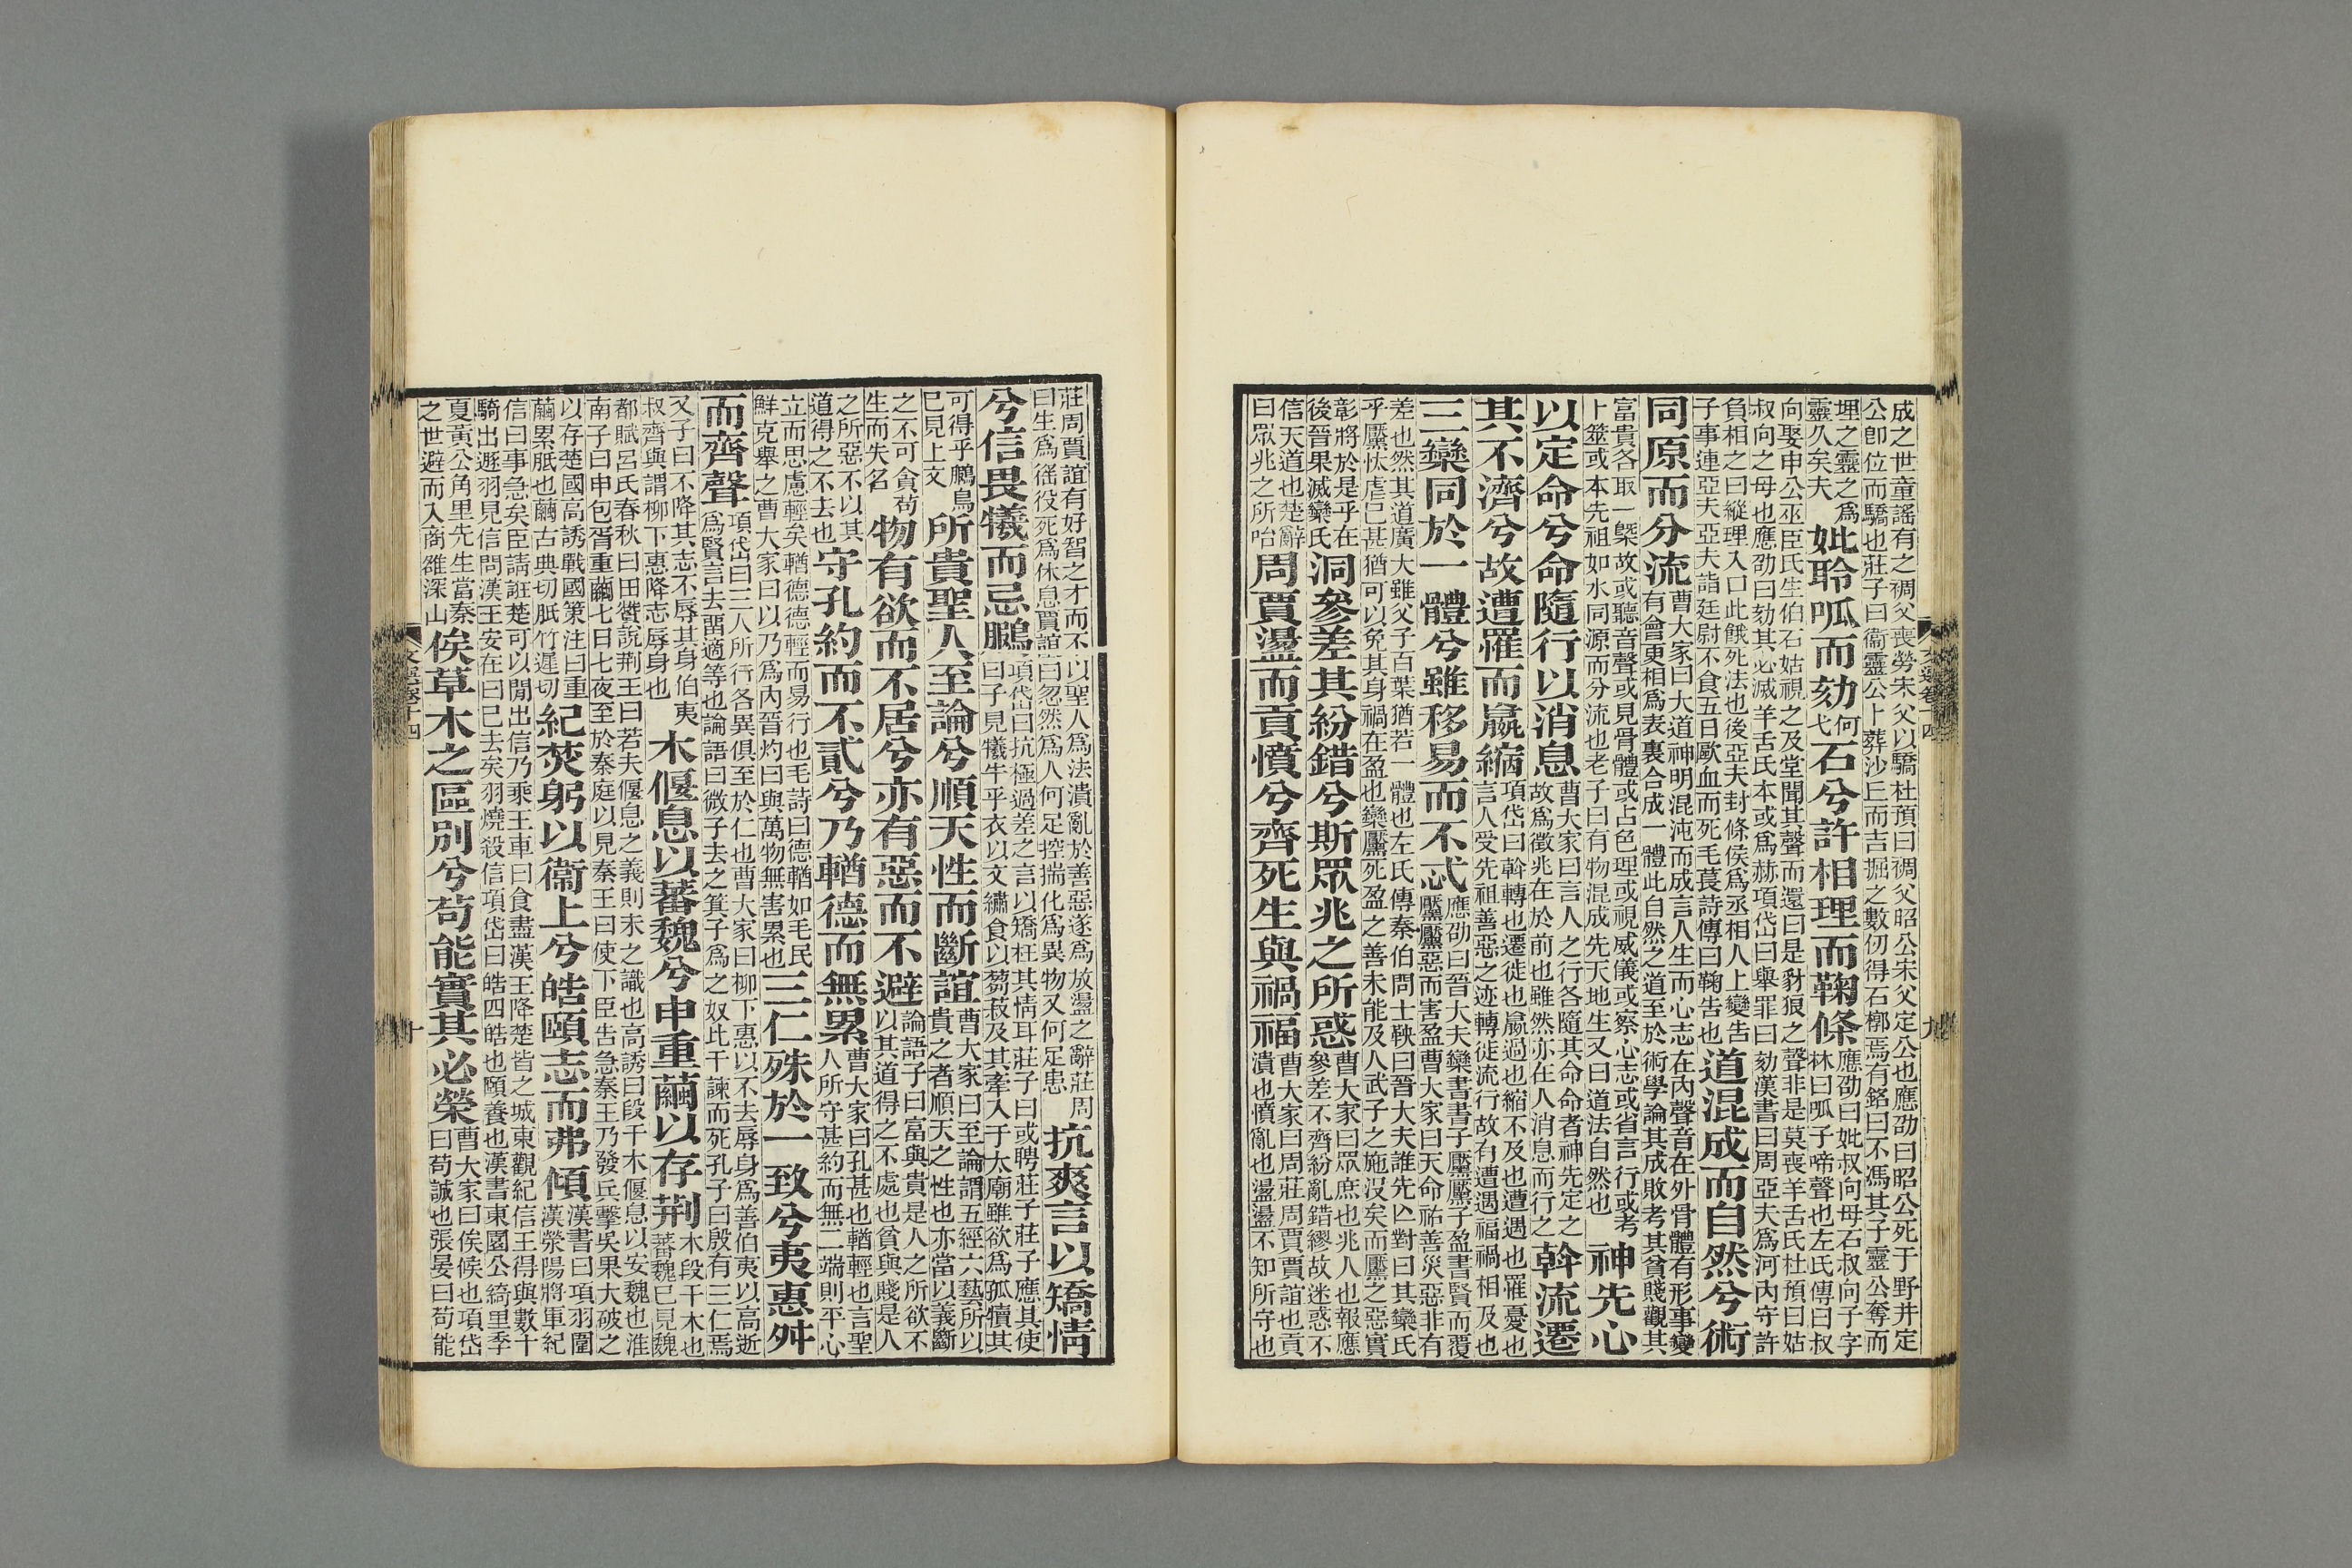 成之世童謠有之稠父喪勞宋父以驕杜預曰稠父昭公宋父定公也應劭曰昭公死于野井定
公卽位而驕也莊子曰衞靈公卜葬沙丘而吉掘之數仞得石槨焉有銘曰不馮其子靈公奪而
埋之靈之爲靈久矣夫妣聆呱而劾何戈石兮許相理而鞠條應劭曰妣叔向母石叔向子字林曰呱子啼聲也左氏傳曰叔
向娶申公巫臣氏生伯石姑視之及堂聞其聲而還曰是豺狼之聲非是莫喪羊舌氏杜預曰姑
叔向之母也應劭曰劾其必滅羊舌氏本或爲赫項岱曰舉罪曰劾漢書曰周亞夫爲河內守許
負相之曰縱理入口此餓死法也後亞夫封條侯爲丞相人上變告子事連亞夫亞夫詣廷尉不食五日歐血而死毛萇詩傳曰鞠告也道混成而自然兮術
同原而分流曹大家曰大道神明混沌而成言人生而心志在內聲音在外骨體有形事變有會更相爲表裏合成一體此自然之道至於術學論其成敗考其貧賤觀其
富貴各取一槩故或聽音聲或見骨體或占色理或視威儀或察心志或省言行或考卜筮或本先祖如水同源而分流也老子曰有物混成先天地生又曰道法自然也神先心
以定命兮命隨行以消息曹大家曰言人之行各隨其命命者神先定之故爲徵兆在於前也雖然亦在人消息而行之斡流遷
其不濟兮故遭罹而嬴縮項岱曰斡轉也遷徙也嬴過也縮不及也遭遇也罹憂也言人受先祖善惡之迹轉徙流行故有遭遇福禍相及也
三欒同於一體兮雖移易而不忒應劭曰晉大夫欒書書子黶黶子盈書賢而覆黶黶惡而害盈曹大家曰天命祐善災惡非有
差也然其道廣大雖父子百葉猶若一體也左氏傳秦伯問士鞅曰晉大夫誰先亾對曰其欒氏
乎黶忲虐已甚猶可以免其身禍在盈也欒黶死盈之善未能及人武子之施沒矣而黶之惡實
彰將於是乎在後晉果滅欒氏洞參差其紛錯兮斯眾兆之所惑曹大家曰眾庶也兆人也報應參差不齊紛亂錯繆故迷惑不
信天道也楚辭曰眾兆之所咍周賈盪而貢憤兮齊死生與禍福曹大家曰周莊周賈賈誼也貢潰也憤亂也盪盪不知所守也
文選卷十四
九
莊周賈誼有好智之才而不以聖人爲法潰亂於善惡遂爲放盪之辭莊周曰生爲徭役死爲休息賈誼曰忽然爲人何足控揣化爲異物又何足患抗爽言以矯情
兮信畏犧而忌鵩項岱曰抗極過差之言以矯枉其情耳莊子曰或聘莊子莊子應其使曰子見犧牛乎衣以文繡食以芻菽及其牽入于太廟雖欲爲孤犢其
可得乎鵩鳥已見上文所貴聖人至論兮順天性而斷誼曹大家曰至論謂五經六藝所以貴之者順天之性也亦當以義斷
之不可貪苟生而失名物有欲而不居兮亦有惡而不避論語子曰富與貴是人之所欲不以其道得之不處也貧與賤是人
之所惡不以其道得之不去也守孔約而不貳兮乃輶德而無累曹大家曰孔甚也輶輕也言聖人所守甚約而無二端則平心
立而思慮輕矣輶德德輕而易行也毛詩曰德輶如毛民鮮克舉之曹大家曰以乃爲內晉灼曰與萬物無害累也三仁殊於一致兮夷惠舛
而齊聲項岱曰三人所行各異俱至於仁也曹大家曰柳下惠以不去辱身爲善伯夷以高逝爲賢言去畱適等也論語曰微子去之箕子爲之奴比干諫而死孔子曰殷有三仁焉
父子曰不降其志不辱其身伯夷叔齊與謂柳下惠降志辱身也木偃息以蕃魏兮申重繭以存荆木段干木也蕃魏已見魏
都賦呂氏春秋曰田贊說荆王曰若夫偃息之義則未之識也高誘曰段干木偃息以安魏也淮
南子曰申包胥重繭七日七夜至於秦庭以見秦王曰使下臣告急秦王乃發兵擊吳果大破之
以存楚國高誘戰國策注曰重繭累胝也繭古典切胝竹遲切紀焚躬以衞上兮皓頤志而弗傾漢書曰項羽圍漢滎陽將軍紀
信曰事急矣臣請誑楚可以閒出信乃乘王車曰食盡漢王降楚皆之城東觀紀信王得與數十
騎出遯羽見信問漢王安在曰已去矣羽燒殺信項岱曰皓四皓也頤養也漢書東園公綺里季
夏黃公角里先生當秦之世避而入商雒深山俟草木之區別兮苟能實其必榮曹大家曰俟候也項岱曰苟誠也張晏曰苟能
文選卷十四
十